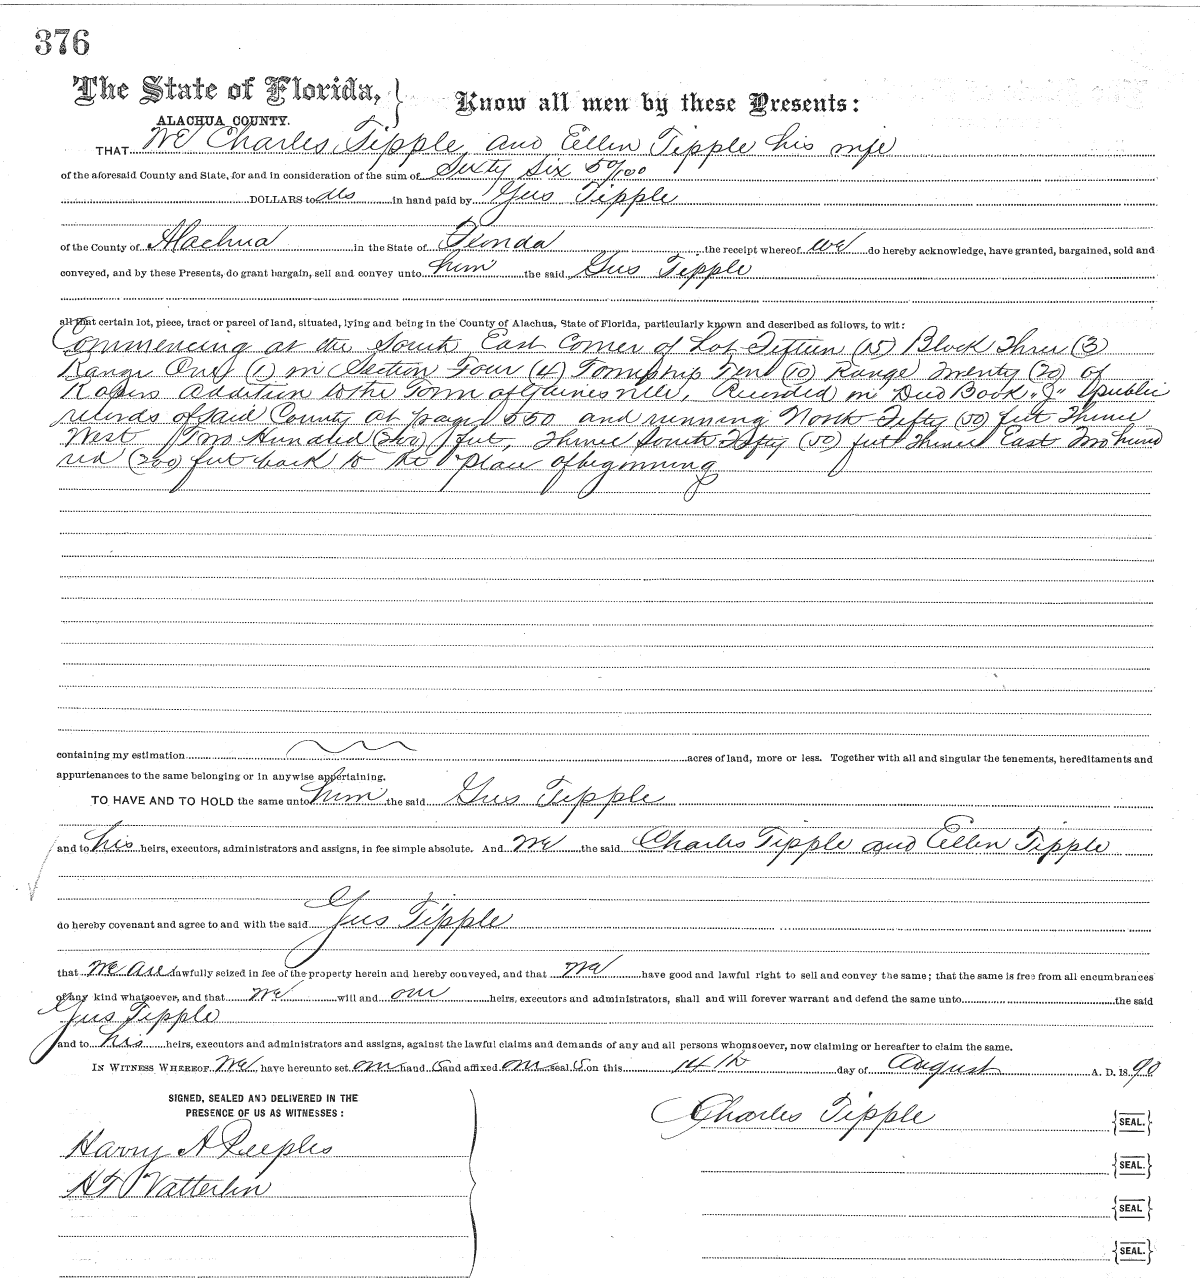 376
The State of Florida,
ALACHUA COUNTY.
Know all men by these Presents:
THAT We Charles Tipple and Ellen Tipple his wife
of the aforesaid County and State, for and in consideration of the sum of Sixty Six 50/100
DOLLARS to us in hand paid by Gus Tipple
of the County of Alachua in the State of Florida the receipt whereof we do hereby acknowledge, have granted, bargained, sold and
conveyed, and by these Presents, do grant bargain, sell and convey unto him the said Gus Tipple
all that certain lot, piece, tract or parcel of land, situated, lying and being in the County of Alachua, State of Florida, particularly known and described as follows, to wit:
Commencing at the South East Corner of Lot Fifteen (15) Block Three (3)
Range One (1) in Section Four (4) Township Ten (10) Range Twenty (20) of
Addition to the Town of Gainesville, Recorded in Deed Book "J" public
records of said County at page 550 and running North Fifty (50) feet Thence
West Two Hundred (200) feet, Thence South Fifty (50) feet Thence East Two hund
red (200) feet back to the place of beginning
containing my estimation acres of land, more or less. Together with all and singular the tenements, hereditaments and
appurtenances to the same belonging or in anywise appertaining.
TO HAVE AND TO HOLD the same unto him the said Gus Tipple
and to his heirs, executors, administrators and assigns, in fee simple absolute. And we the said Charles Tipple and Ellen Tipple
do hereby covenant and agree to and with the said Gus Tipple
that we are lawfully seized in fee of the property herein and hereby conveyed, and that we have good and lawful right to sell and convey the same; that the same is free from all encumbrances
of any kind whatsoever, and that we will and our heirs, executors and administrators, shall and will forever warrant and defend the same unto the said
Gus Tipple
and to his heirs, executors and administrators and assigns, against the lawful claims and demands of any and all persons whomsoever, now claiming or hereafter to claim the same.
IN WITNESS WHEREOF We have hereunto set our hand s and affixed our seal s on this 14th day of August A. D. 1890
SIGNED, SEALED AND DELIVERED IN THE
PRESENCE OF US AS WITNESSES:
Charles Tipple {SEAL.}
Harry A Peeples
{SEAL.}
{SEAL.}
{SEAL.}